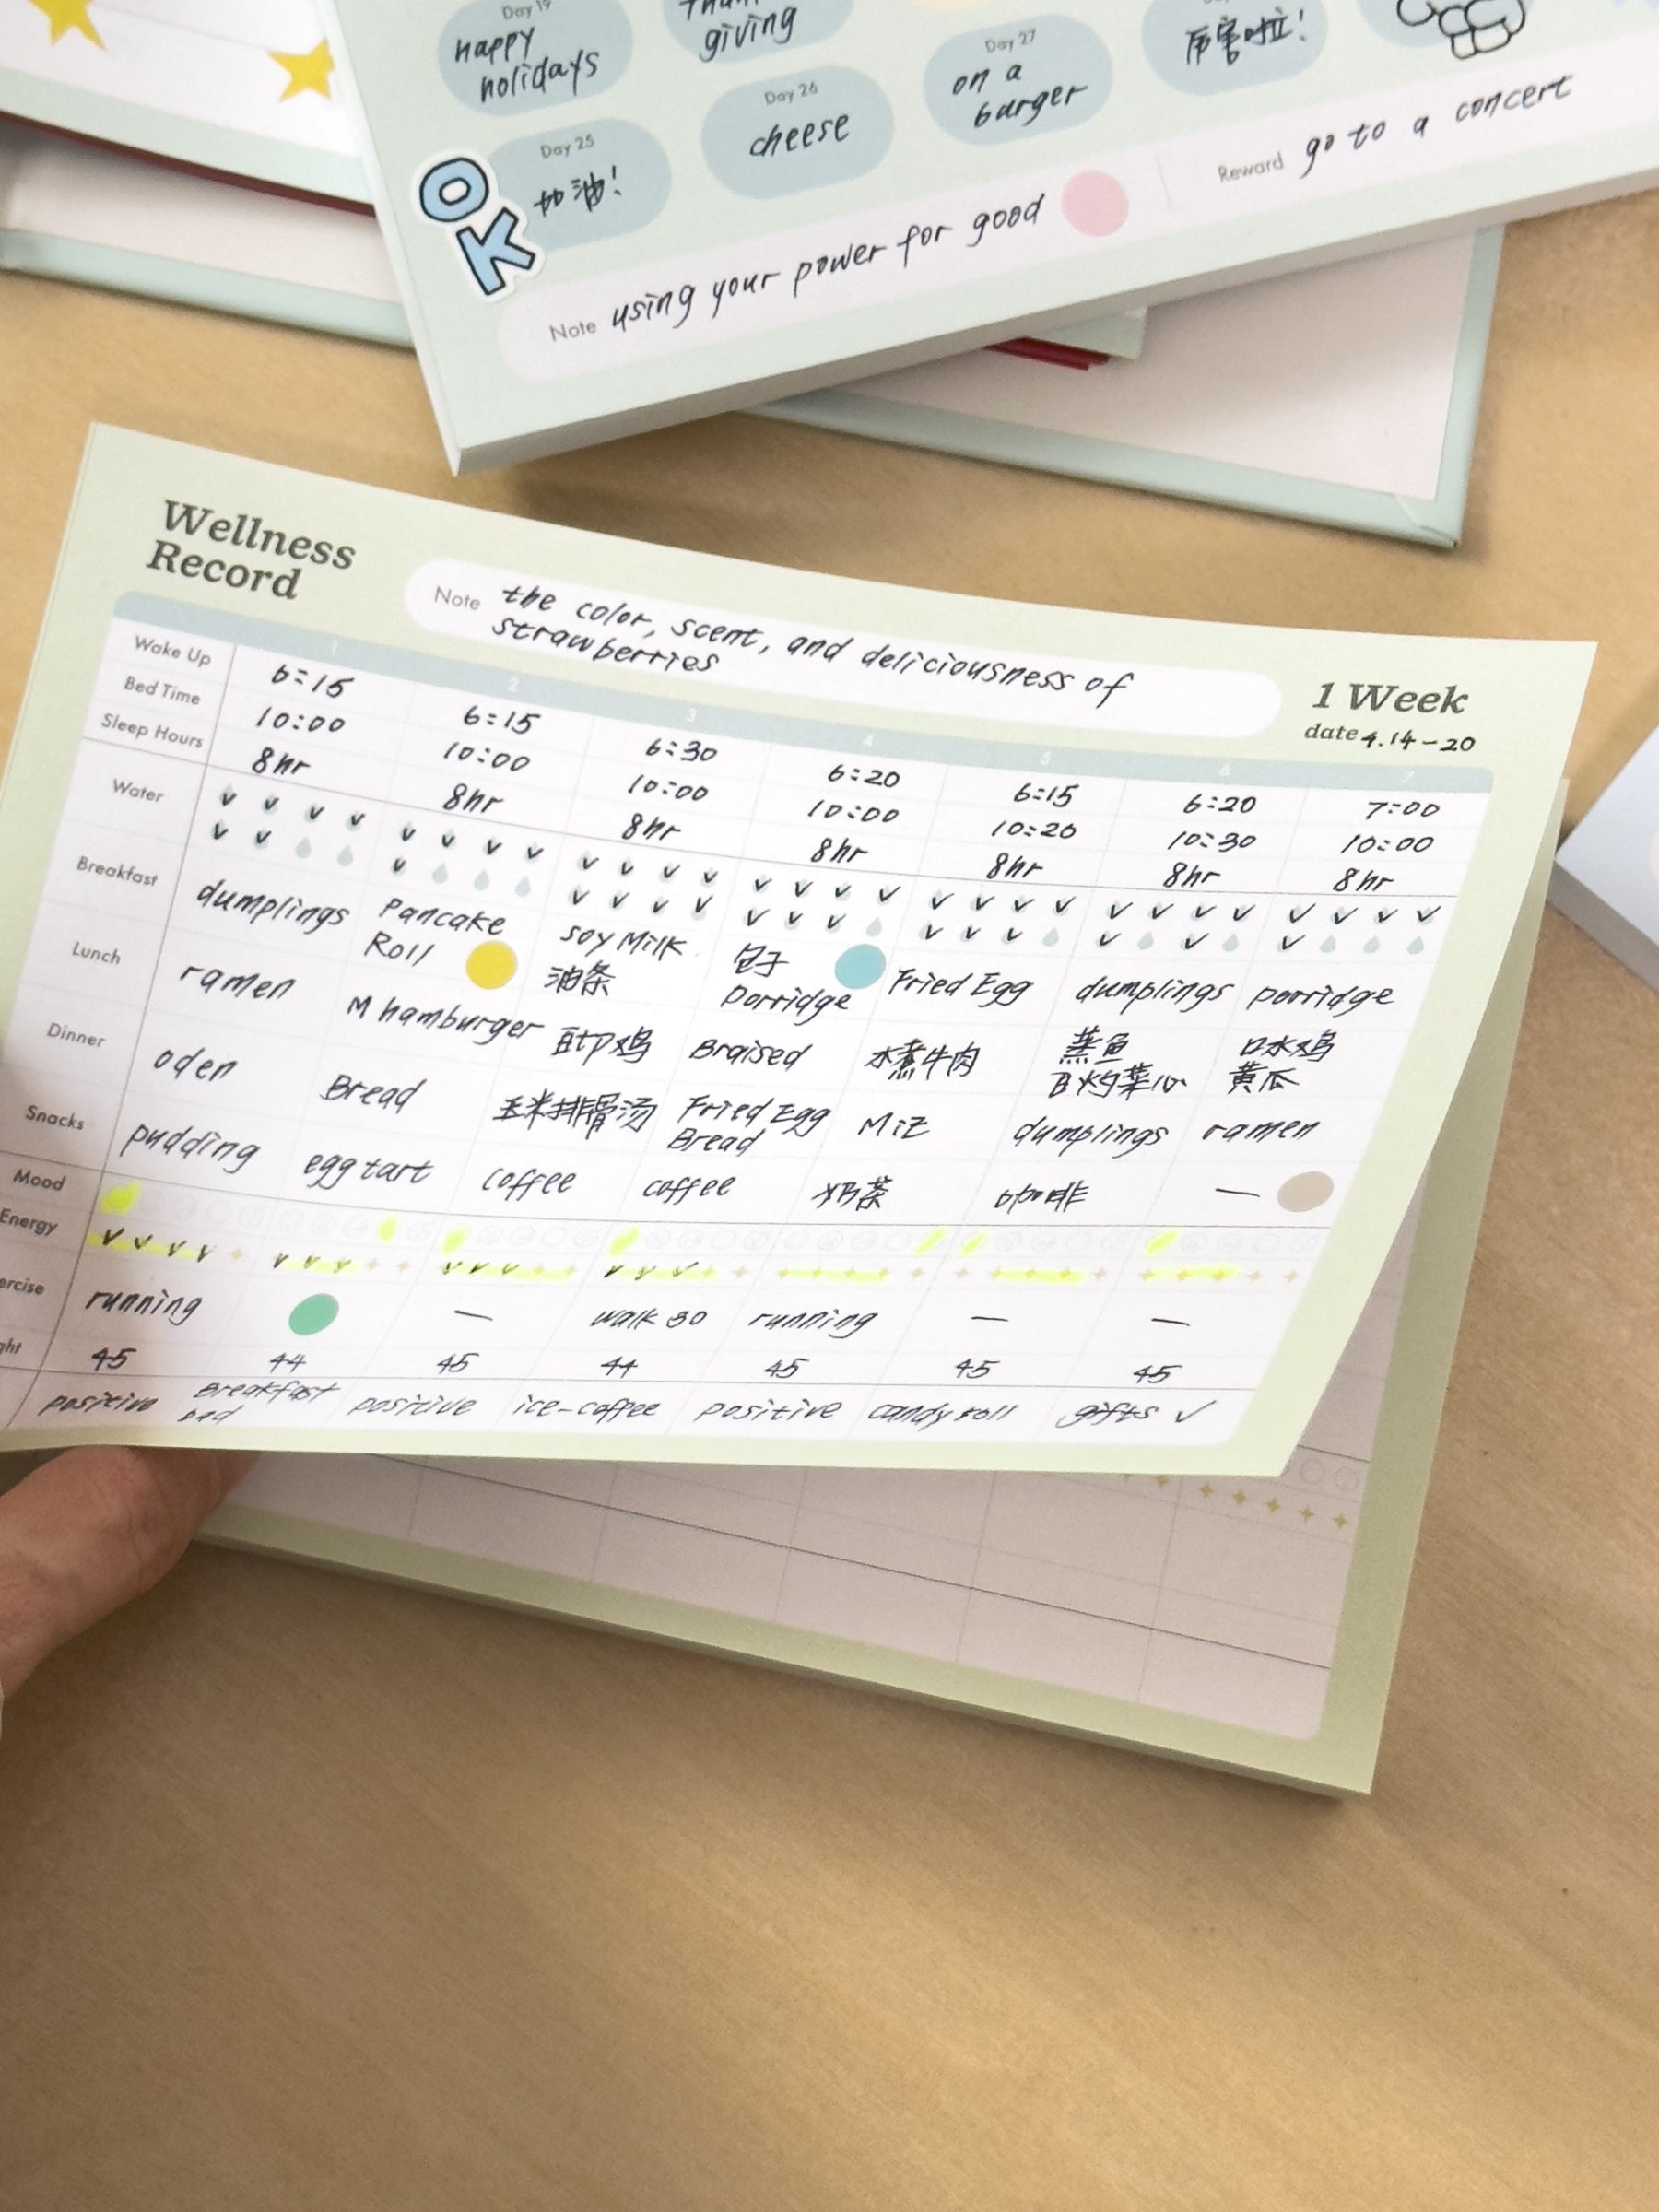 Day 19
happy
holidays
giving
Day 27
on a
burger
厉害啦!
Day 26
cheese
Day 25
加油!
OK
Note using your power for good
Reward go to a concert
Wellness
Record
Note the color, scent, and deliciousness of
strawberries
1 Week
date 4.14-20
1 2 3 4 5 6 7
Wake Up 6:15 6:15 6:30 6:20 6:15 6:20 7:00
Bed Time 10:00 10:00 10:00 10:00 10:20 10:30 10:00
Sleep Hours 8hr 8hr 8hr 8hr 8hr 8hr 8hr
Water
Breakfast dumplings Pancake Roll soy Milk 油条 包子 Porridge Fried Egg dumplings porridge
Lunch ramen M hamburger 鸡 Braised 水煮牛肉 蒸鱼 白灼菜心 口水鸡 黄瓜
Dinner oden Bread 玉米排骨汤 Fried Egg Bread dumplings ramen
Snacks pudding egg tart coffee coffee 奶茶 咖啡 —
Mood
Energy
ercise running — walk 30 running — —
ght 45 44 45 44 45 45 45
positive Breakfast positive ice-coffee positive candy roll gifts ✓